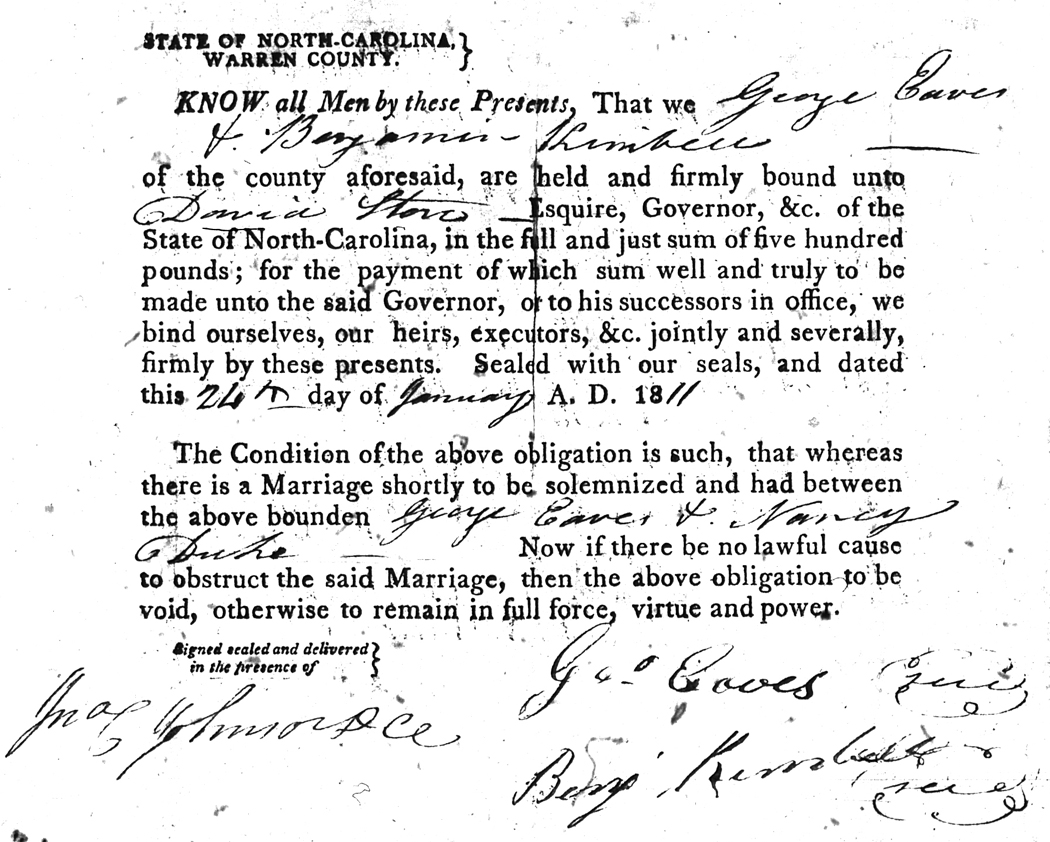 STATE OF NORTH-CAROLINA, }
WARREN COUNTY.
KNOW all Men by these Presents, That we George Eaves
& Benjamin Kimbell —
of the county aforesaid, are held and firmly bound unto
David Stone — Esquire, Governor, &c. of the
State of North-Carolina, in the full and just sum of five hundred
pounds; for the payment of which sum well and truly to be
made unto the said Governor, or to his successors in office, we
bind ourselves, our heirs, executors, &c. jointly and severally,
firmly by these presents. Sealed with our seals, and dated
this 24th day of January A. D. 1811
The Condition of the above obligation is such, that whereas
there is a Marriage shortly to be solemnized and had between
the above bounden George Eaves & Nancy
Duke — Now if there be no lawful cause
to obstruct the said Marriage, then the above obligation to be
void, otherwise to remain in full force, virtue and power.
Signed sealed and delivered }
in the presence of
Geo Eaves Seal
Jno Johnson DCC
Benj Kimbell Seal